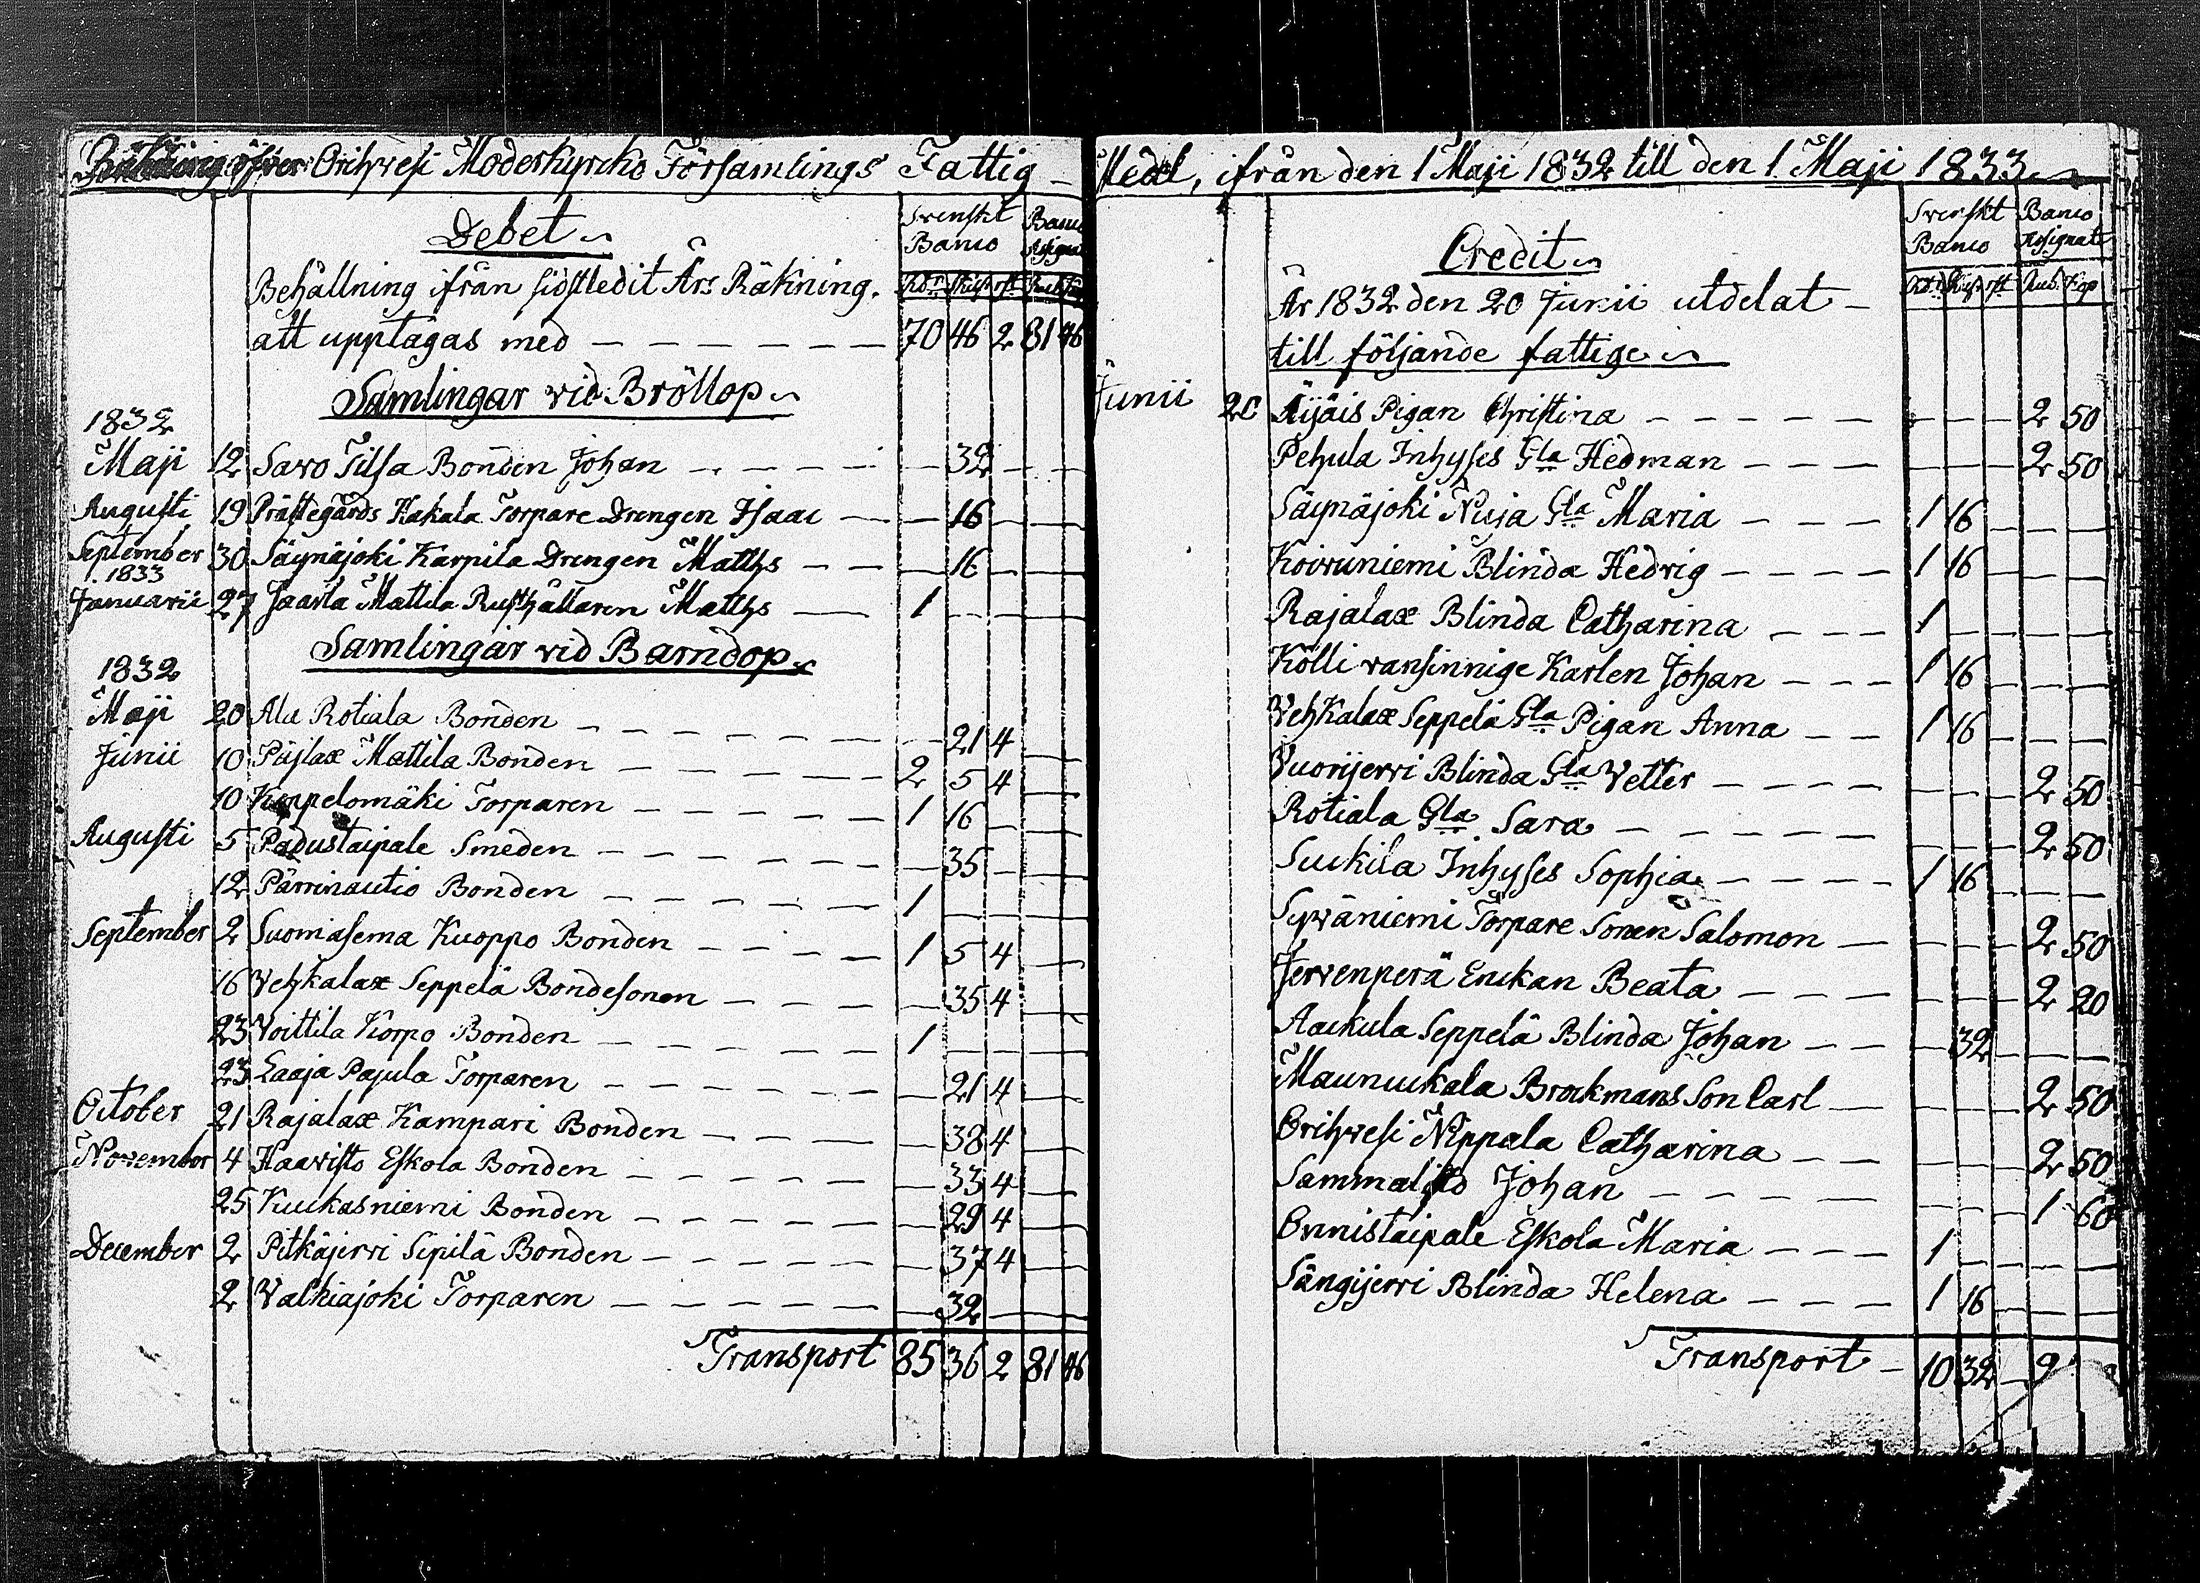 Räkning öfver Orihvesi Moderkyrcko Församlings Fattig-
Debet
Svenskt Banco
Banco Assignat
Behållning ifrån sidstledit Års Räkning.
Rdr Skil rst
att upptagas med — — — — — — 70 46 2 81 46
Samlingar vid Bröllop
1832
Maji 12 Savo Tilsa Bonden Johan — — — — — 32 — —
Augusti 19 Prästegårds Kakala Torpare Drengen Isaac — — 16 — —
September 30 Säynäjoki Karpila Drengen Matths — — — 16 — —
1833
Januarii 27 Jaarla Mattila Rusthållaren Matths — 1 — — —
Samlingar vid Barndop
1832
Maji 20 Alu Rotiala Bonden — — — — — — 21 4 —
Junii 10 Päjlax Mattila Bonden — — — — — 2 5 4 —
10 Koppelomäki Torparen — — — — — 1 16 — —
Augusti 5 Padustaipale Smeden — — — — — — 35 — —
12 Pärrinautio Bonden — — — — — 1 — — —
September 2 Suomasema Kuoppo Bonden — — — — 1 5 4 —
16 Vehkalax Seppelä Bondesonen — — — — 35 4 —
23 Voittila Korpo Bonden — — — — — 1 — — —
23 Laaja Pajula Torparen — — — — — — 21 4 —
October 21 Rajalax Kampari Bonden — — — — — 38 4 —
November 4 Haavisto Eskola Bonden — — — — — — 33 4 —
25 Kuukasniemi Bonden — — — — — — 29 4 —
December 2 Pitkäjervi Sipilä Bonden — — — — — — 37 4 —
2 Valkiajoki Torparen — — — — — — 32 — —
Transport 85 36 2 81 46
Medel, ifrån den 1 Maji 1832 till den 1 Maji 1833
Credit
Svenskt Banco
Banco Assignat
Rdr Skil rst Rub. Kop
År 1832 den 20 Junii utdelat —
till följande fattige
Junii 20 Äijäis Pigan Christina — — — — — — — — 2 50
Pehula Inhyses Gla Hedman — — — — — — 2 50
Säynäjoki Nuja Gla Maria — — — 1 16 — — —
Koivuniemi Blinda Hedvig — — — — 1 16 — — —
Rajalax Blinda Catharina — — — 1 — — — —
Kölli vansinnige Karlen Johan — — — 1 16 — — —
Vehkalax Seppelä Gla Pigan Anna — — 1 16 — — —
Vuorijervi Blinda Gla Vetter — — — — — — — 2 50
Rotiala Gla Sara — — — — — — — — 2 50
Suukila Inhyses Sophia — — — — 1 16 — — —
Syväniemi Torpare Sonen Salomon — — — — 2 50
Jervenperä Enckan Beata — — — — — — 2 20
Aakula Seppelä Blinda Johan — — — 32 — — —
Maunuukala Brockmans Son Carl — — — — 2 50
Orihvesi Nippala Catharina — — — — — 2 50
Sammalisto Johan — — — — — — — 1 60
Onnistaipale Eskola Maria — — — 1 — — — —
Sängijerri Blinda Helena — — — 1 16 — — —
Transport — 10 32 —